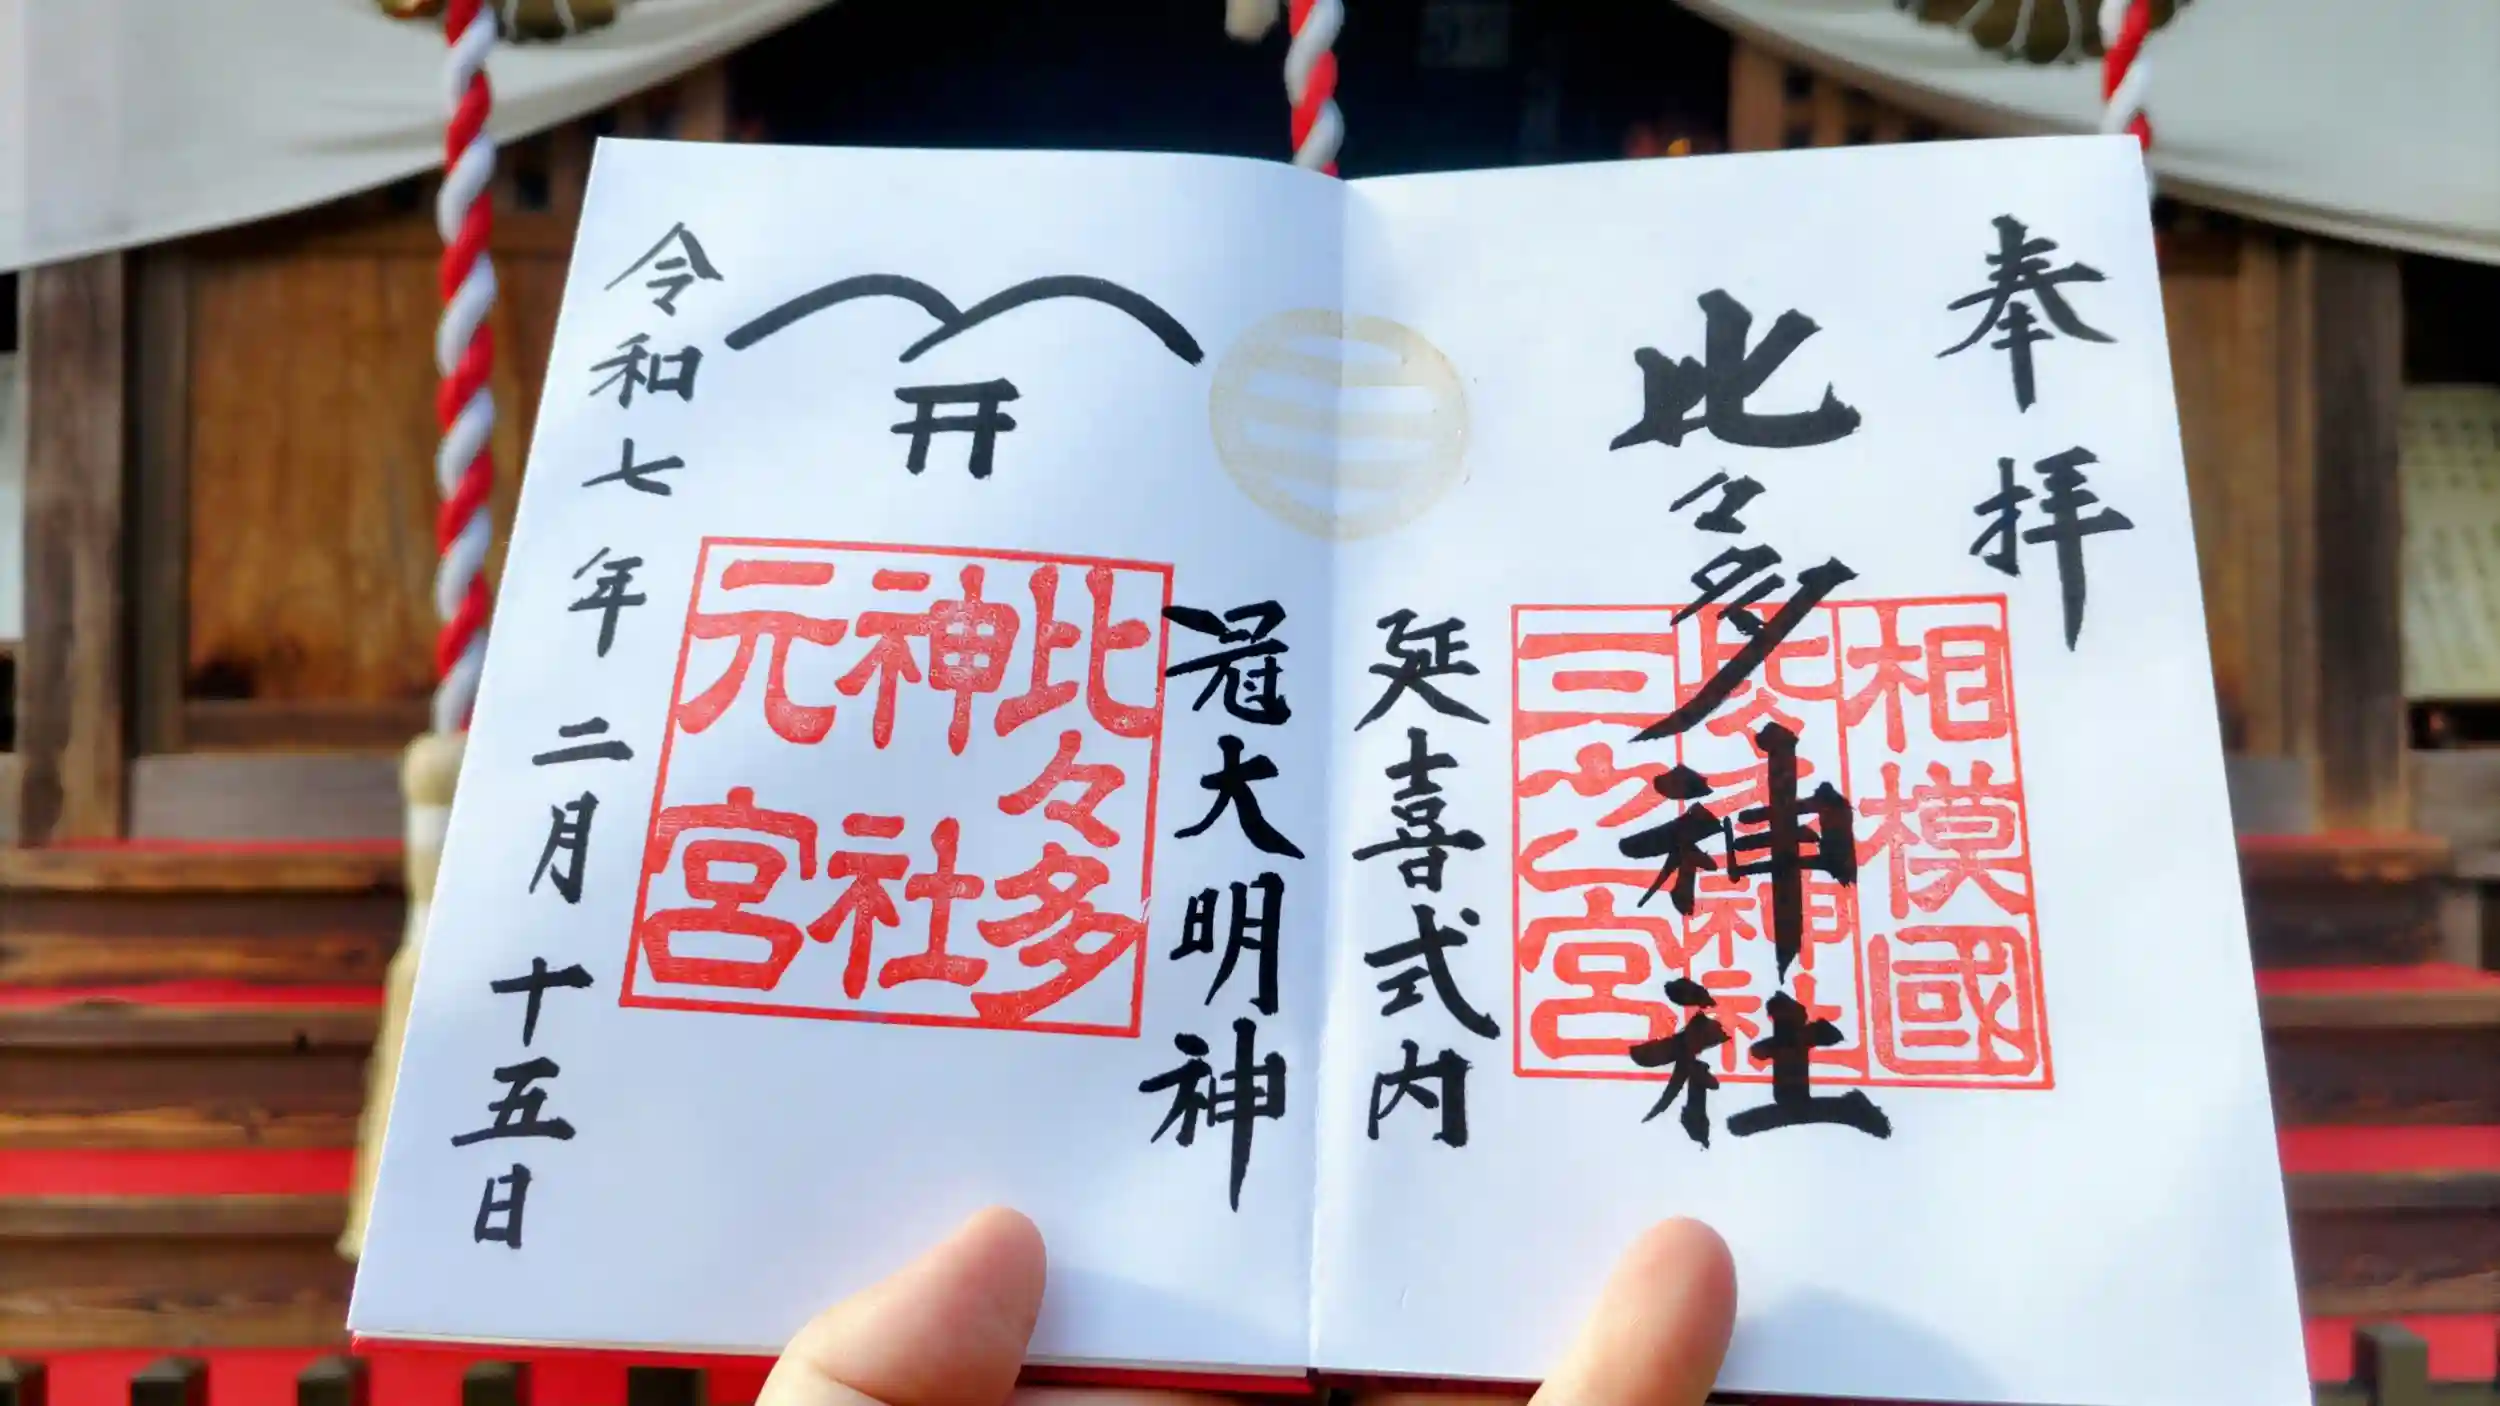 奉拝
比々多神社
相模國
比々多神社
三之宮
延喜式内
冠大明神
比々多
神社
元宮
令和七年二月十五日